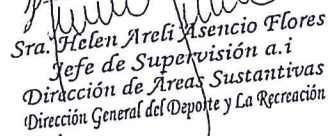 Sra. Helen Areli Asencio Flores
Jefe de Supervisión a.i
Dirección de Áreas Sustantivas
Dirección General del Deporte y La Recreación